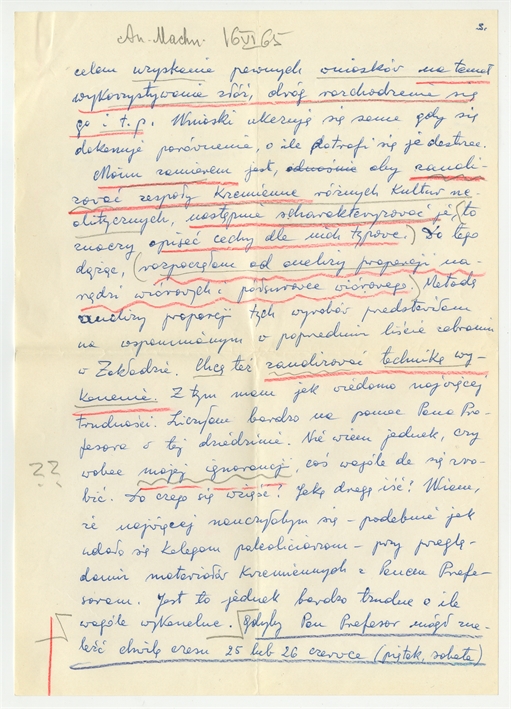 An. Machn. 16 VI 65
3.
celem uzyskania pewnych wniosków na temat
wykorzystywania złóż, dróg rozchodzenia się
go i t.p. Wnioski ukazują się same gdy się
dokonuje porównania, o ile potrafi się je dostrzec.
Moim zamiarem jest, aby zanali-
zować zespoły krzemienne różnych kultur ne-
olitycznych, następnie scharakteryzować je (to
znaczy opisać cechy dla nich typowe.) Do tego
dążąc, (rozpocząłam od analizy proporcji na-
rzędzi wiórowych i półsurowca wiórowego.) Metodę
analizy proporcji tych wyrobów przedstawiłam
na wspomnianym w poprzednim liście zebraniu
w Zakładzie. Chcę też zanalizować technikę wy-
konania. Z tym mam jak wiadomo najwięcej
trudności. Liczyłam bardzo na pomoc Pana Pro-
fesora w tej dziedzinie. Nie wiem jednak, czy
wobec mojej ignorancji, coś wogóle da się zro-
bić. Do czego się wziąść? Jaką drogą iść? Wiem,
że najwięcej nauczyłabym się – podobnie jak
udało się kolegom paleoliciarzom – przy przeglą-
daniu materiałów krzemiennych z Panem Profe-
sorem. Jest to jednak bardzo trudne o ile
wogóle wykonalne. Gdyby Pan Profesor mógł zna-
leźć chwilę czasu 25 lub 26 czerwca (piątek, sobota)
??